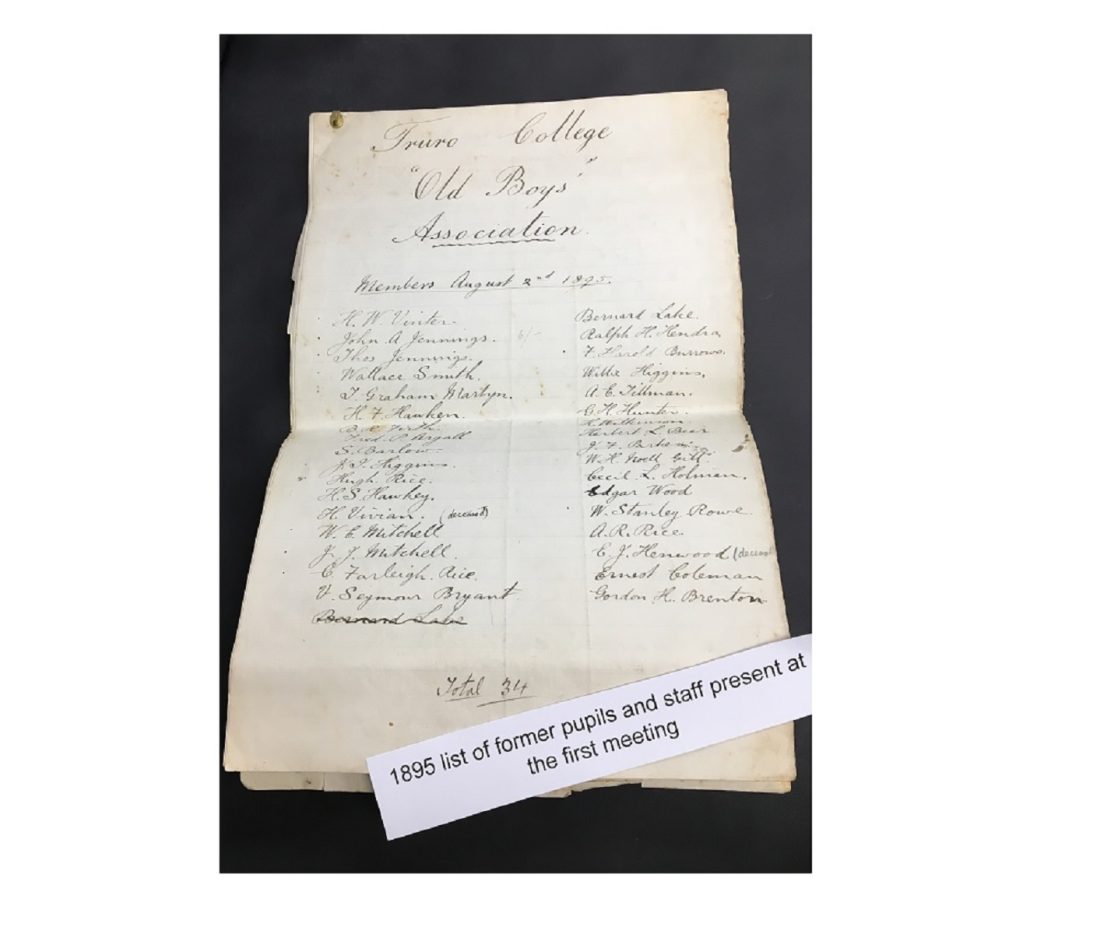 Truro College
"Old Boys"
Association.
Members August 2nd 1895.
H. W. Vinter.
John A Jennings. 6/-
Thos Jennings.
Wallace Smith.
J. Graham Martyn.
H. F. Hawken.
Firth.
Fred. P. Argall
S. Barlow.
J. J. Higgins.
Hugh Rice.
H. S. Hawkey.
H. Vivian. (deceased)
W. E. Mitchell
J. J. Mitchell.
C. Farleigh. Rice.
V. Seymour Bryant
Bernard Lake
Bernard Lake.
Ralph H. Hendra
F. Harold Burrows.
Willie Higgins.
A. E. Tillman.
G. H. Hunter.
Wilkinson
Herbert L. Bear
J. F.
W. H. Noell Gill
Cecil L. Holman.
Edgar Wood
W. Stanley Rowe
A. R. Rice.
E. J. Henwood (deceas
Ernest Coleman
Gordon H. Brenton
Total 34
1895 list of former pupils and staff present at
the first meeting